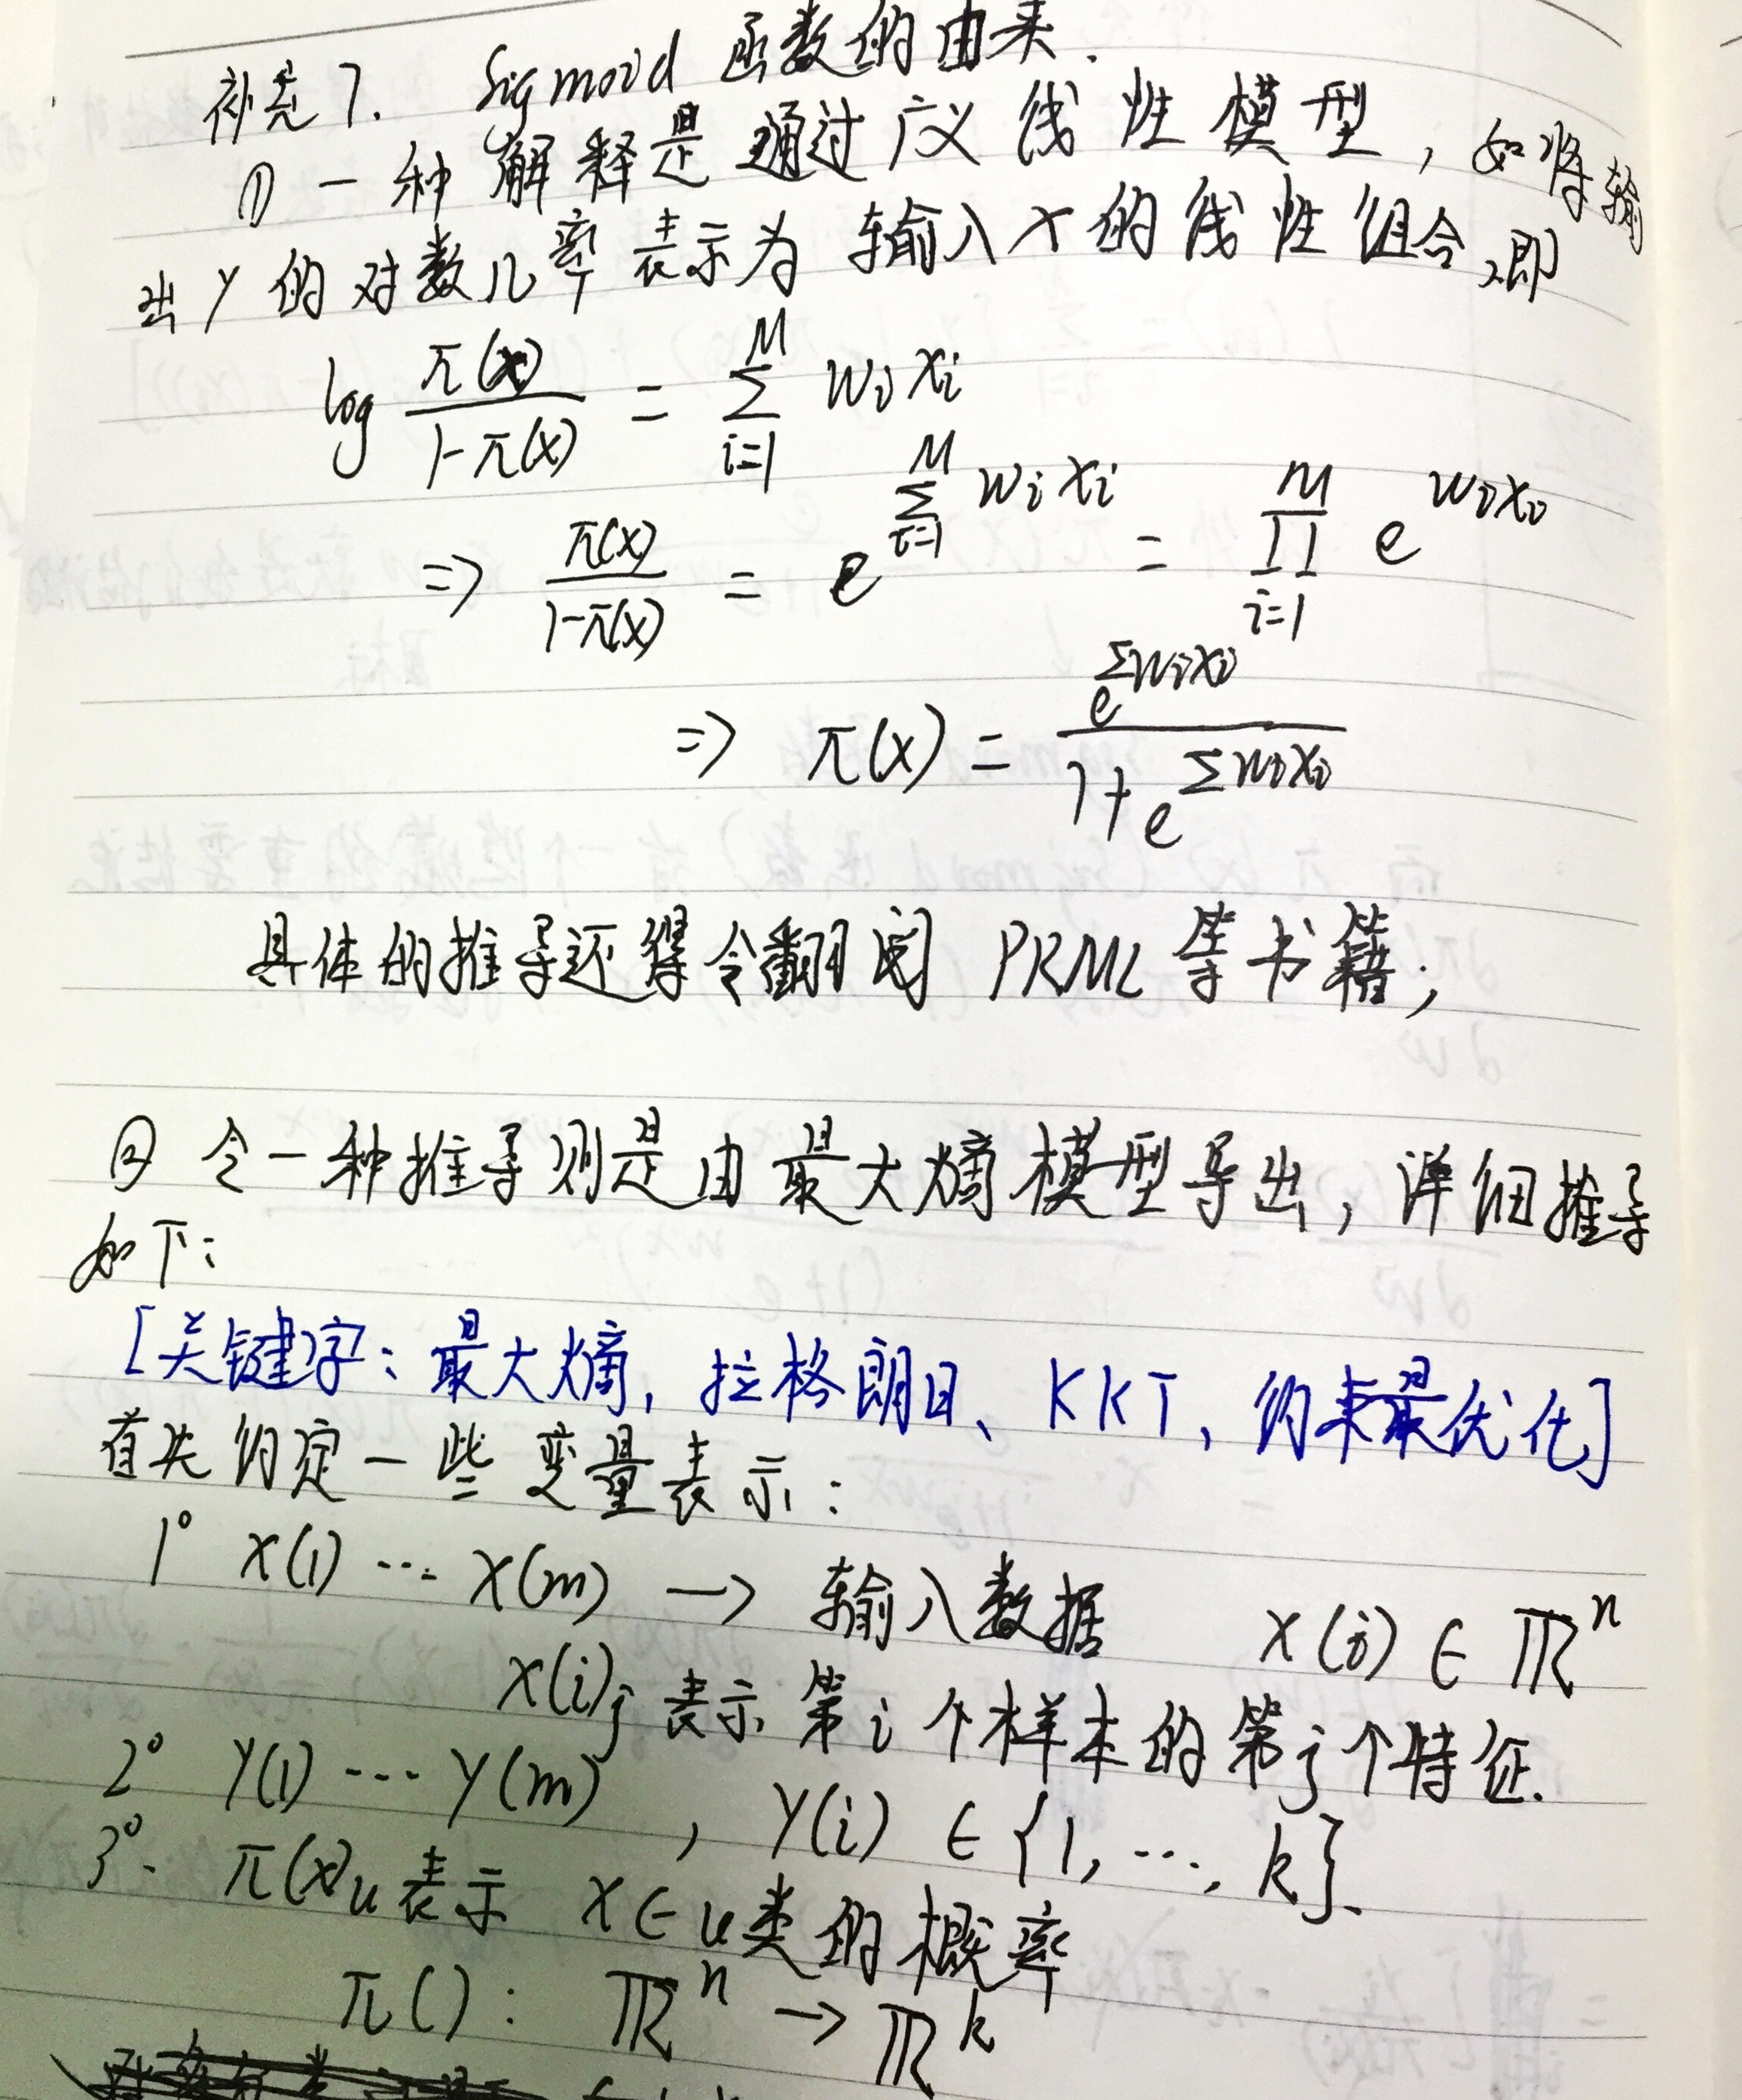 补充7. Sigmoid 函数的由来.
① 一种解释是通过广义线性模型, 如将输
出 y 的对数几率表示为 输入 x 的线性组合, 即
log π(x)/(1-π(x)) = ∑_{i=1}^{M} w_i x_i
=> π(x)/(1-π(x)) = e^{∑_{i=1}^{M} w_i x_i} = ∏_{i=1}^{M} e^{w_i x_i}
=> π(x) = e^{∑w_i x_i}/(1+e^{∑w_i x_i})
具体的推导还得令翻阅 PRML 等书籍;
② 令一种推导则是由最大熵模型导出, 详细推导
如下:
[关键字: 最大熵, 拉格朗日、KKT, 约束最优化]
首先约定一些变量表示:
1° x(1) ... x(m) → 输入数据 x(i) ∈ ℝ^n
x(i)_j 表示第 i 个样本的第 j 个特征.
2° y(1) ... y(m), y(i) ∈ {1, ..., k}.
3°. π(x)_u 表示 x∈u类的概率
π( ): ℝ^n → ℝ^k